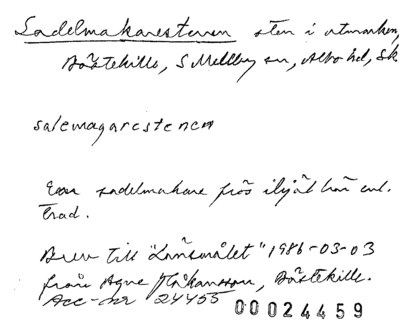 Sadelmakarestenen sten i utmarken,
Böstekille, S Mellby sn, Albo hd, Sk.
salemagarestenen
En sadelmakare frös ihjäl här enl.
trad.
Brev till "Länsmålet" 1986-03-03
från Agne Håkansson, Böstekille.
Acc-nr 24455
00024459